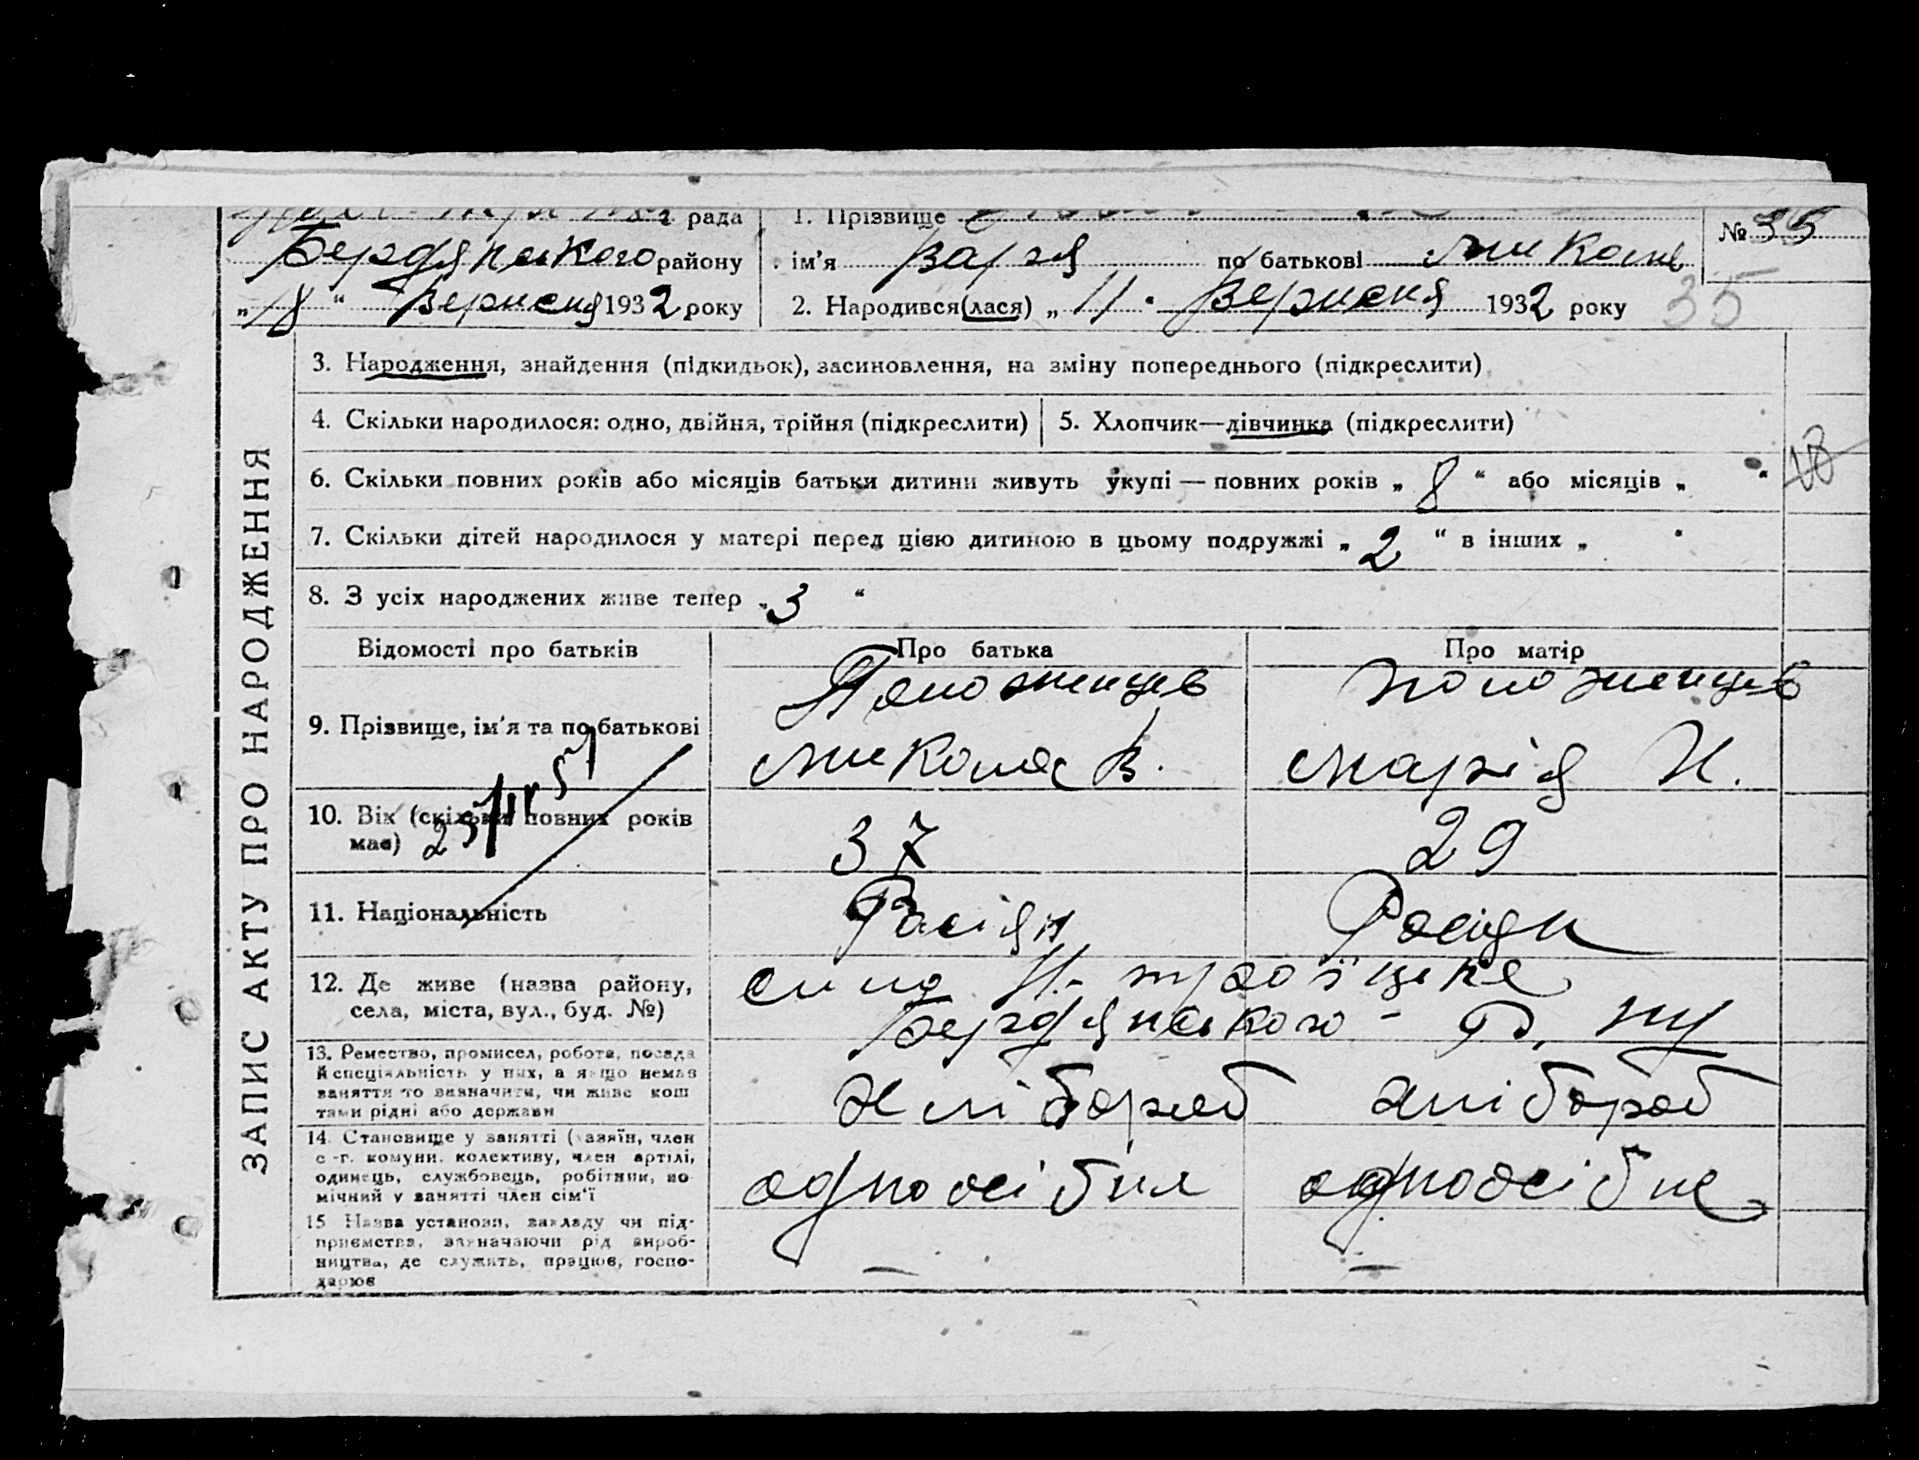 рада
Бердянського району
„18“ Вересня 1932 року
1. Прізвище
ім'я Варя по батькові Микол
№ 35
2. Народився(лася) „11. Вересня 1932 року
35
ЗАПИС АКТУ ПРО НАРОДЖЕННЯ
3. Народження, знайдення (підкидьок), засиновлення, на зміну попереднього (підкреслити)
4. Скільки народилося: одно, двійня, трійня (підкреслити)
5. Хлопчик—дівчинка (підкреслити)
6. Скільки повних років або місяців батьки дитини живуть укупі — повних років „8“ або місяців „ “
7. Скільки дітей народилося у матері перед цією дитиною в цьому подружжі „2“ в інших „ "
8. З усіх народжених живе тепер „3“
Відомості про батьків
Про батька
Про матір
9. Прізвище, ім'я та по батькові
Положенцев
Микола В.
Положенцев
Марія И.
10. Вік (скільки повних років
має)
37
29
11. Національність
Росіян
Росіян
12. Де живе (назва району,
села, міста, вул., буд. №)
Н-Троїцке
Бердянського - Р,
13. Ремество, промисел, робота, посада
й спеціяльність у них, а якщо немає
заняття то зазначити, чи живе кош
тами рідні або держави
хлібороб
хлібороб
14. Становище у занятті (хазяїн, член
с.-г. комуни, колективу, член артілі,
одинець, службовець, робітник, по
мічний у занятті член сім'ї
одноосібне
одноосібне
15 Назва установи, закладу чи під-
приємства, зазначаючи рід вироб-
ництва, де служить, працює, госпо-
дарює
—
—